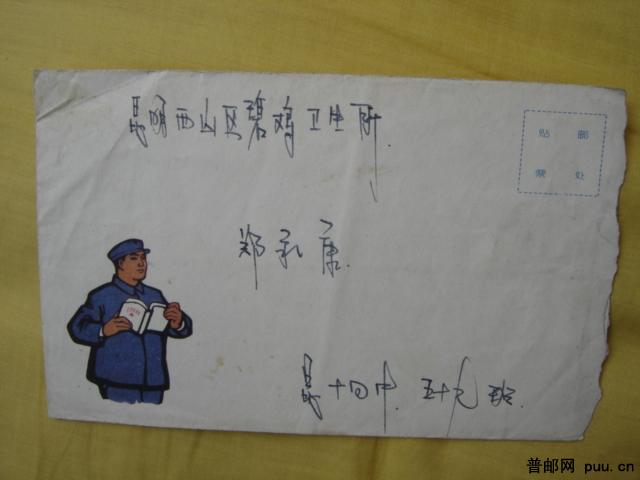 昆明西山区碧鸡卫生所
贴 邮
票 处
郑永康
昆十四中.五十九班.
普邮网 puu.cn